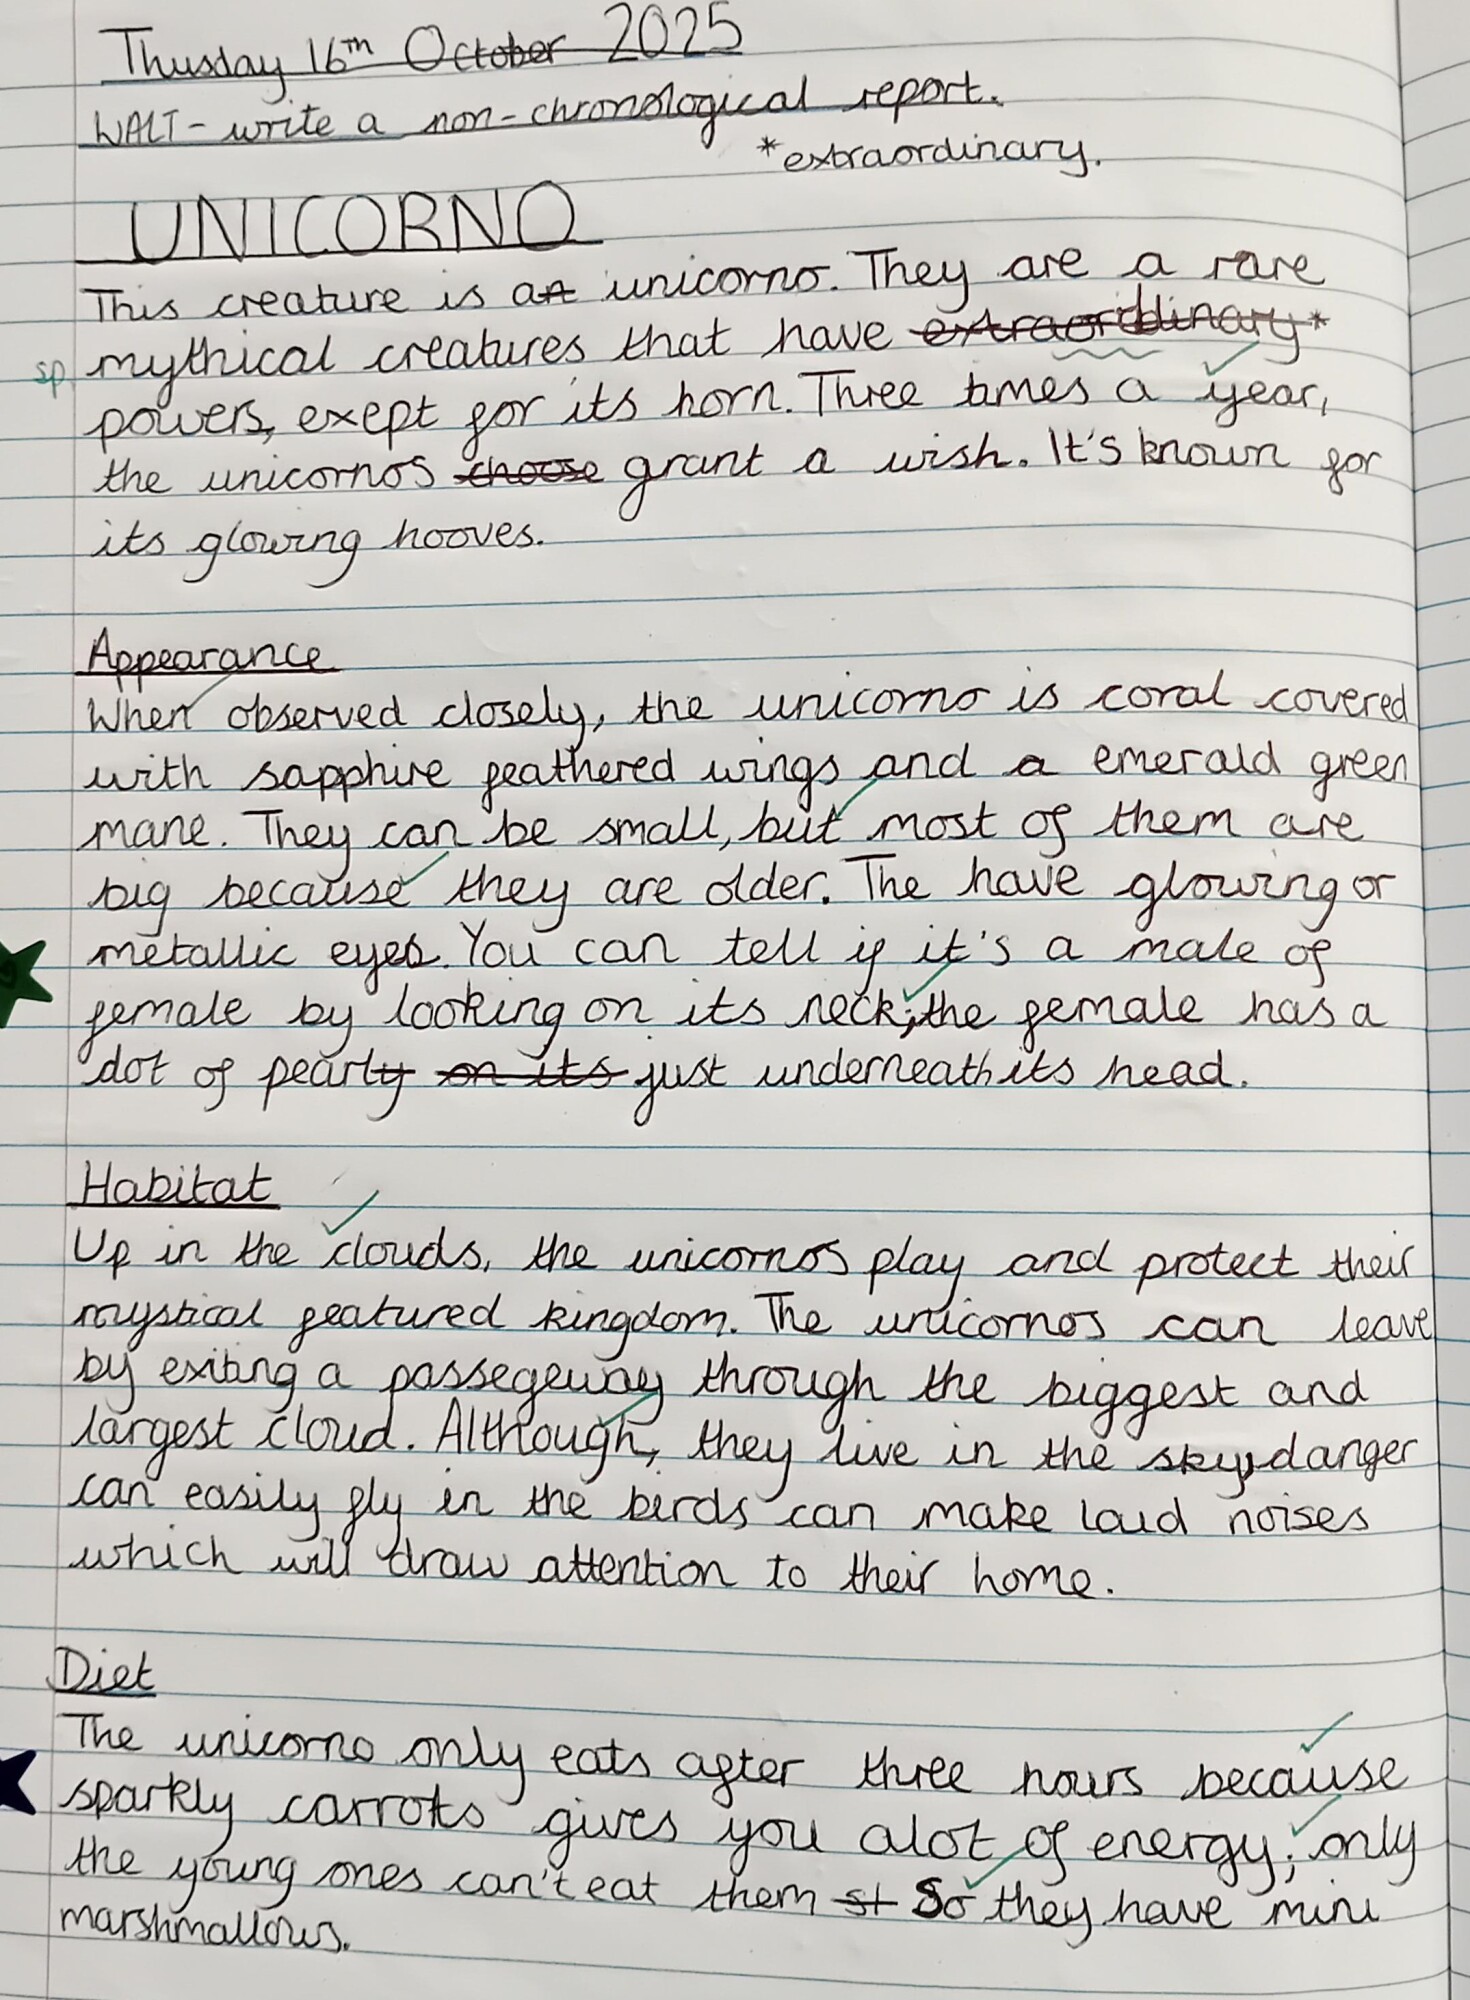 Thusday 16th October 2025
WALT - write a non-chronological report.
*extraordinary.
UNICORNO
This creature is an unicorno. They are a rare
mythical creatures that have extraordinary*
sp powers, exept for its horn. Three times a year,
the unicornos choose grant a wish. It's known for
its glowing hooves.
Appearance
When observed closely, the unicorno is coral covered
with sapphire feathered wings and a emerald green
mane. They can be small, but most of them are
big because they are older. The have glowing or
metallic eyes. You can tell if it's a male of
female by looking on its neck; the female has a
dot of pearly on its just underneath its head.
Habitat
Up in the clouds, the unicornos play and protect their
mystical featured kingdom. The unicornos can leave
by exiting a passegeway through the biggest and
largest cloud. Although, they live in the sky, danger
can easily fly in the birds can make loud noises
which will draw attention to their home.
Diet
The unicorno only eats after three hours because
sparkly carrots gives you alot of energy; only
the young ones can't eat them st So they have mini
marshmallows.